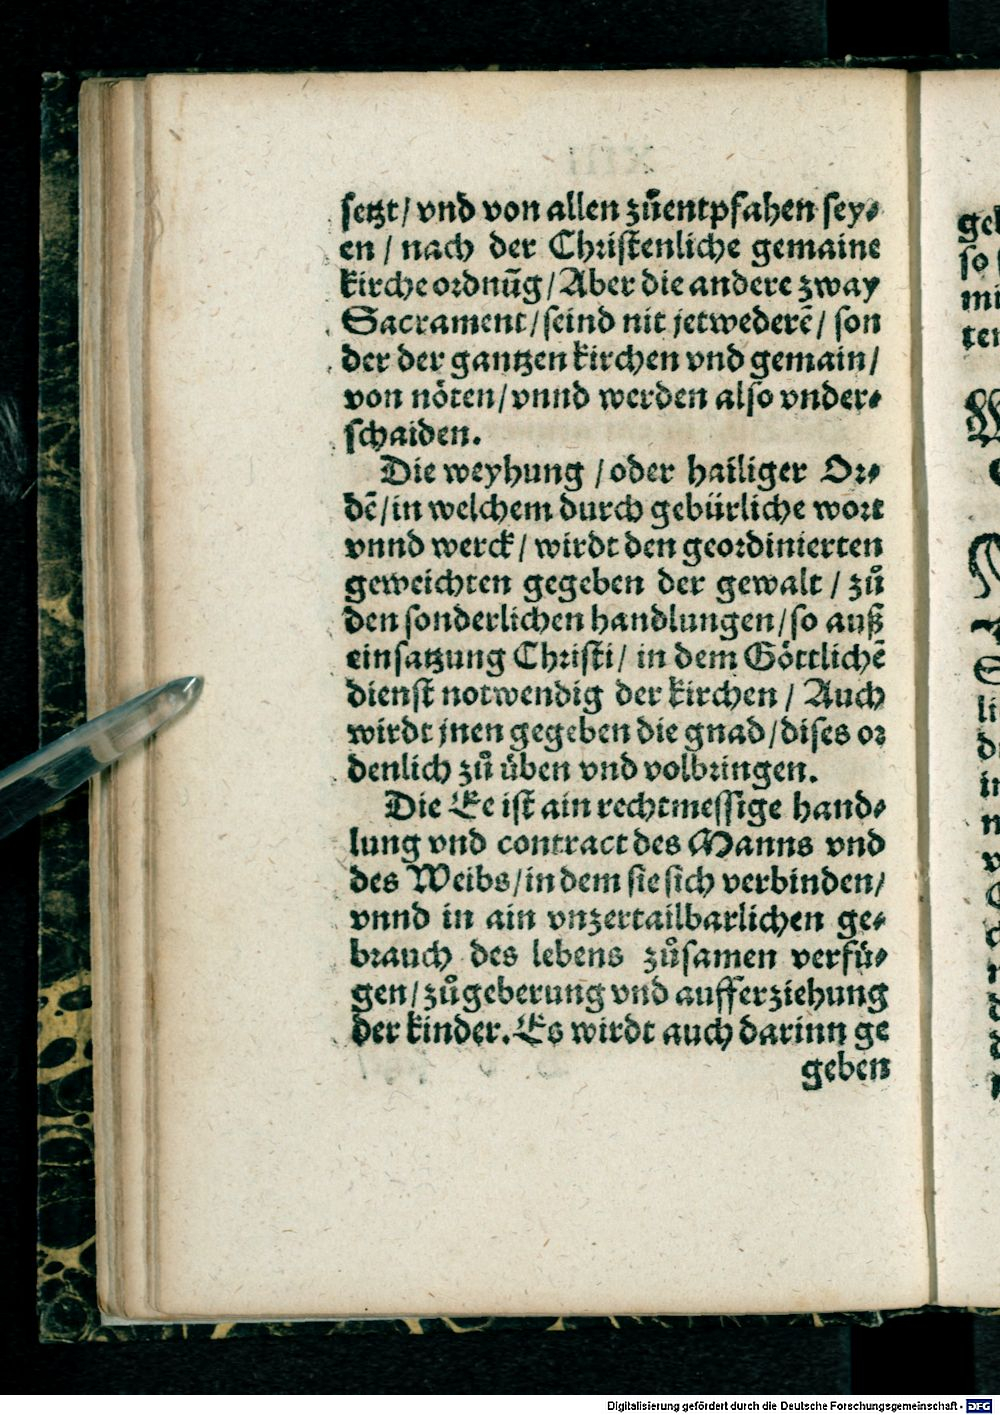 setzt / vnd von allen zůentpfahen sey⸗
en / nach der Christenliche gemaine
kirche ordnūg / Aber die andere zway
Sacrament / seind nit jetwederē / son
der der gantzen kirchen vnd gemain /
von nöten / vnnd werden also vnder⸗
schaiden.
Die weyhung / oder hailiger Or⸗
dē / in welchem durch gebürliche wort
vnnd werck / wirdt den geordinierten
geweichten gegeben der gewalt / zů
den sonderlichen handlungen / so auß
einsatzung Christi / in dem Göttlichē
dienst notwendig der kirchen / Auch
wirdt jnen gegeben die gnad / dises or
denlich zů üben vnd volbringen.
Die Ee ist ain rechtmessige hand⸗
lung vnd contract des Manns vnd
des Weibs / in dem sie sich verbinden /
vnnd in ain vnzertailbarlichen ge⸗
brauch des lebens zůsamen verfü⸗
gen / zůgeberung vnd aufferziehung
der kinder. Es wirdt auch darinn ge
geben
gel
so
mi
ten
Digitalisierung gefördert durch die Deutsche Forschungsgemeinschaft - DFG